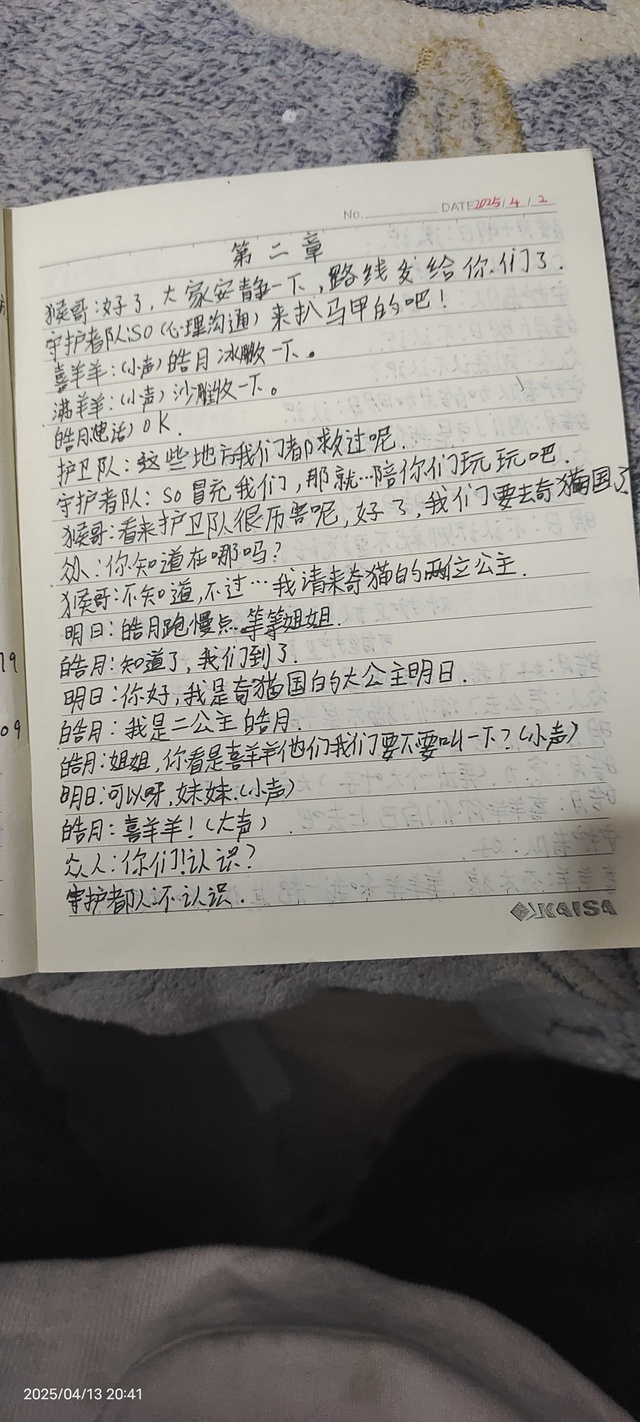 No. DATE 2025 / 4 / 2
第二章
猴哥:好了,大家安静一下,路线发给你们了.
守护者队:SO(心理沟通)来扒马甲的吧!
喜羊羊:(小声)皓月冰撤一下。
满羊羊:(小声)沙雕收一下。
皓月(电话)OK.
护卫队:这些地方我们都救过呢.
守护者队:so冒充我们,那就…陪你们玩玩吧.
猴哥:看来护卫队很厉害呢,好了,我们要去奇猫国了
众人:你知道在哪吗?
猴哥:不知道,不过…我请来奇猫的两位公主.
明日:皓月跑慢点.等等姐姐.
皓月:知道了,我们到了.
明日:你好,我是奇猫国的大公主明日.
皓月:我是二公主皓月.
皓月:姐姐,你看是喜羊羊他们我们要不要叫一下?(小声)
明日:可以呀,妹妹.(小声)
皓月:喜羊羊!(大声)
众人:你们认识?
守护都队:不认识.
KAISA
19
09
2025/04/13 20:41